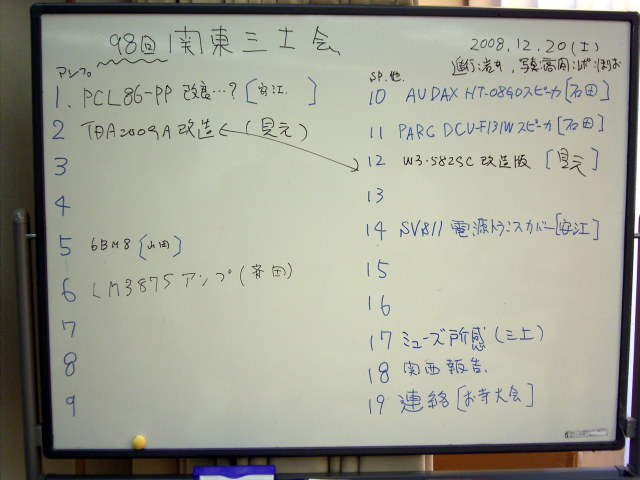 98回 関東三土会
2008.12.20(土)
進行:岩井, 写真:高岡, レポ:ほりお
アンプ
1. PCL86-PP 改良…? [安江. ]
2 TDA2009A 改造 ← (見元)
3
4
5 6BM8 [山田]
6 LM3875 アンプ (斉田)
7
8
9
SP. 他.
10 AUDAX HT-08G0スピーカ [石田]
11 PARC DCU-F131W スピーカ [石田]
12 W3-582SC 改造版 [見元]
13
14 SV811 電源トランスカバー [安江]
15
16
17 ミューズ所感 (三上)
18 関西報告.
19 連絡 [お寺大会]